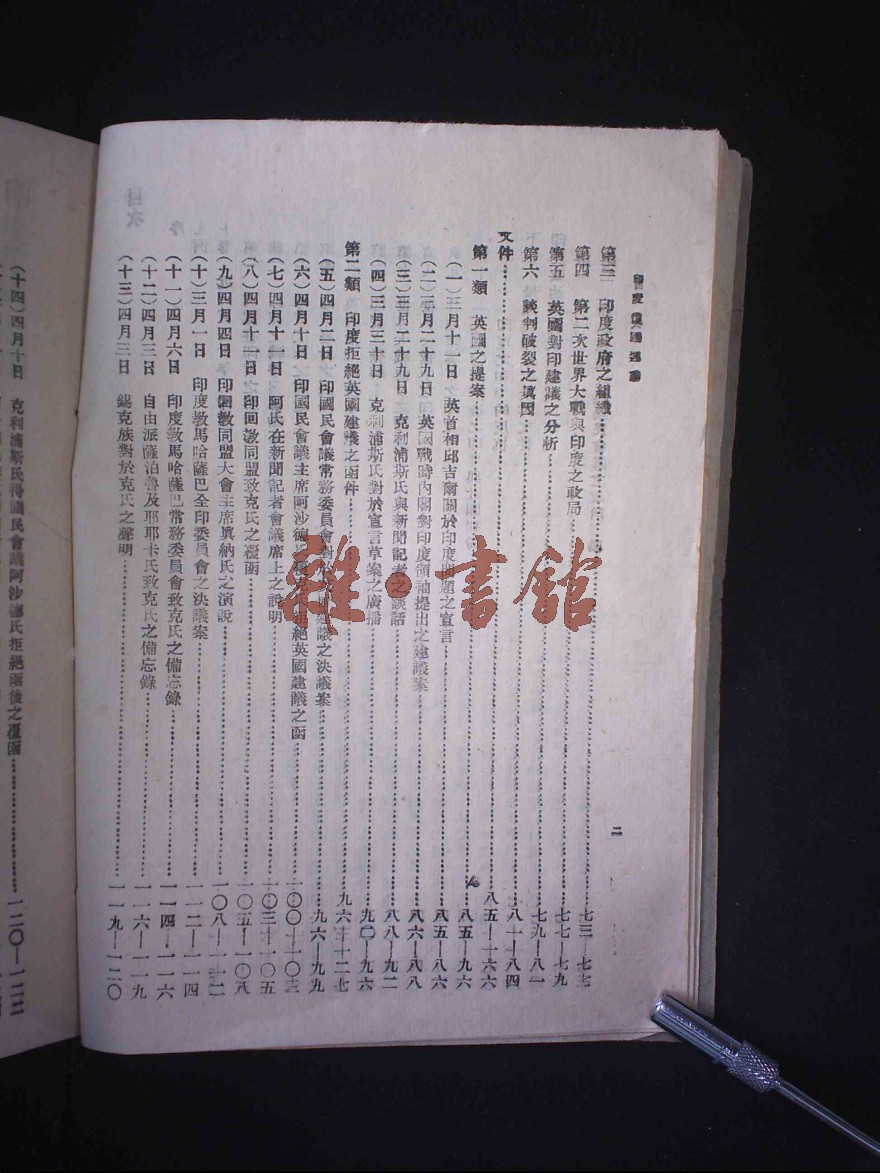 二
第三　印度政府之組織……七三—七七
第四　第二次世界大戰與印度之政局……七七—七九
第五　英國對印建議之分析……七九—八一
第六　談判破裂之真因……八一—八四
文件……八五—一六六
第一類　英國之提案……八五—九六
(一)三月十一日　英首相邱吉爾關於印度問題之宣言……八五—八六
(二)三月二十九日　英國戰時內閣對印度領袖提出之建議案……八六—八八
(三)三月二十九日　克利浦斯氏與新聞記者之談話……八八—九二
(四)三月三十日　克利浦斯氏對於宣言草案之廣播……九〇—九六
第二類　印度拒絕英國建議之函件……九六—一二七
(五)四月二日　印國民會議常務委員會對於建議之決議案……九六—九九
(六)四月十日　印國民會議主席阿沙德氏克氏拒絕英國建議之函……一〇〇—一〇三
(七)四月十一日　阿氏在新聞記者會議席上之說明……一〇三—一〇五
(八)四月十一日　印回教同盟致克氏之覆函……一〇五—一〇八
(九)四月四日　印回教同盟大會主席真納氏之演說……一〇八—一一二
(十)三月一日　印度教馬哈薩巴全印委員會之決議案……一一二—一一四
(十一)四月六日　印度教馬哈薩巴常務委員會致克氏之備忘錄……一一四—一一六
(十二)四月三日　自由派薩泊魯及耶耶卡氏致克氏之備忘錄……一一六—一一九
(十三)四月三日　錫克族對於克氏之聲明……一一九—一二〇
(十四)四月十日　克利浦斯氏得國民會議阿沙德氏拒絕函後之覆函……一二〇—一二二
雜·書館